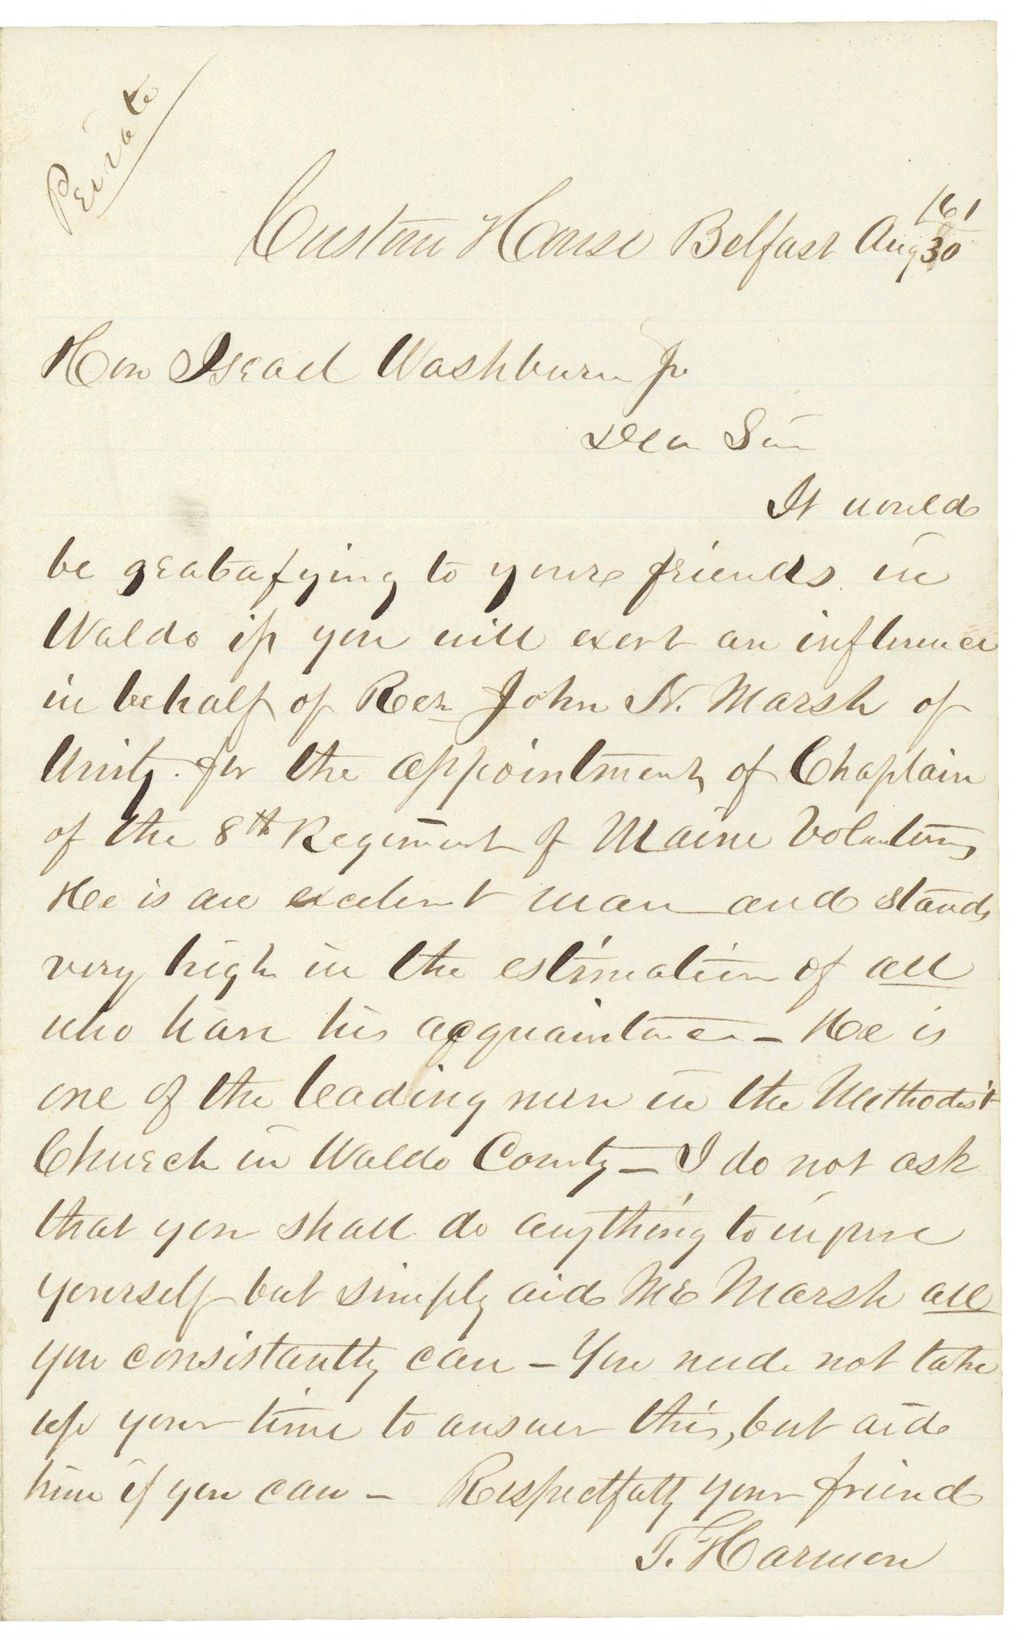 Private
Custom House Belfast Aug 30 /61
Hon Israel Washburn Jr
Dear Sir
It would
be gratafying to youre friends in
Waldo if you will exert an influence
in behalf of Rev John N. Marsh of
Unity for the appointment of Chaplain
of the 8th Regiment of Maine Volunteers
He is an excelent man and stands
very high in the estimation of all
who have his acquaintance - He is
one of the leading men in the Methodist
Church in Waldo County - I do not ask
that you shall do anything to injure
yourself but simply aid Mr Marsh all
you consistantly can - You need not take
up your time to answer this, but aid
him if you can - Respectfully your friend
T. Harmon